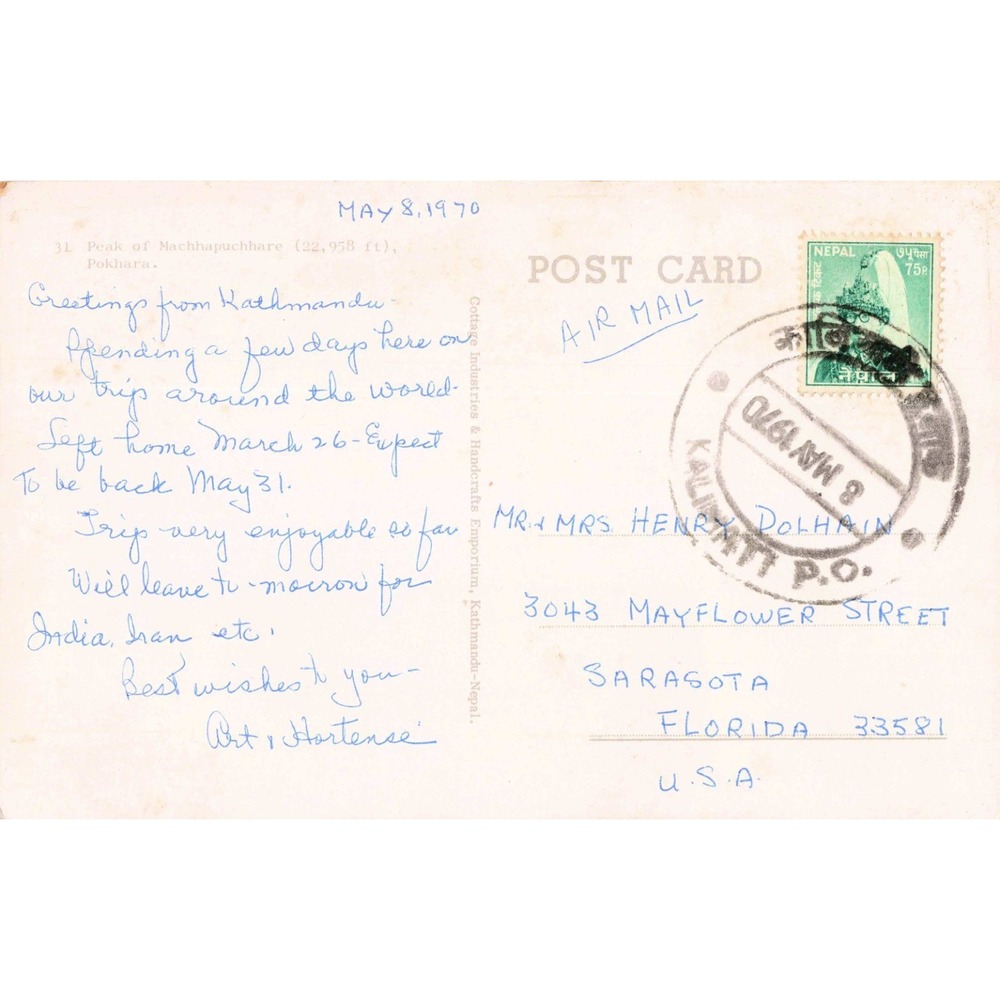 MAY 8, 1970
31 Peak of Machhapuchhare (22,958 ft),
Pokhara.
Greetings from Kathmandu-
Spending a few days here on
our trip around the world-
Left home March 26-Expect
To be back May 31.
Trip very enjoyable so far
Will leave to-morrow for
India, Iran etc.
Best wishes to you-
Art & Hortense
Cottage Industries & Handcrafts Emporium, Kathmandu-Nepal.
POST CARD
AIR MAIL
NEPAL ७५ पैसा
75P
नेपाल
8 MAY 1970
P.O.
MR. & MRS. HENRY DOLHAIN
3043 MAYFLOWER STREET
SARASOTA
FLORIDA 33581
U.S.A.